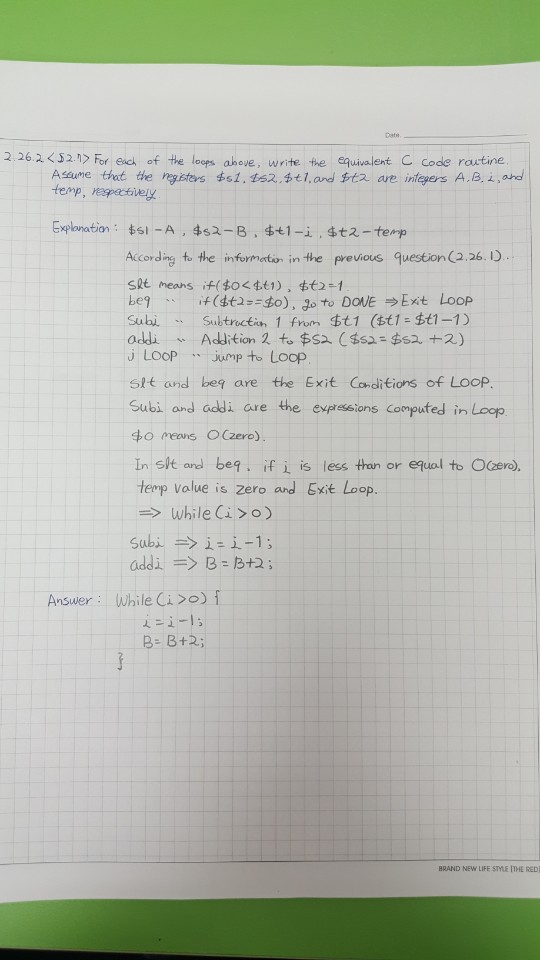 Date.
2.26.2 <§2.7> For each of the loops above, write the equivalent C code routine.
Assume that the registers $s1, $s2, $t1, and $t2 are integers A, B, i, and
temp, respectively.
Explanation : $s1 - A , $s2 - B , $t1 - i , $t2 - temp
According to the information in the previous question (2.26.1)...
slt means if($0<$t1), $t2=1
beq 〃 if($t2==$0), go to DONE ⇒ Exit LOOP
subi 〃 Subtraction 1 from $t1 ($t1=$t1-1)
addi 〃 Addition 2 to $s2 ($s2=$s2 +2)
j LOOP 〃 jump to LOOP
slt and beq are the Exit Conditions of LOOP.
Subi and addi are the expressions computed in Loop.
$0 means 0(zero).
In slt and beq, if i is less than or equal to 0(zero),
temp value is zero and Exit Loop.
⇒ While (i>0)
subi ⇒ i = i-1;
addi ⇒ B = B+2;
Answer : While (i>0) {
i = i-1;
B = B+2;
}
BRAND NEW LIFE STYLE [THE RED]